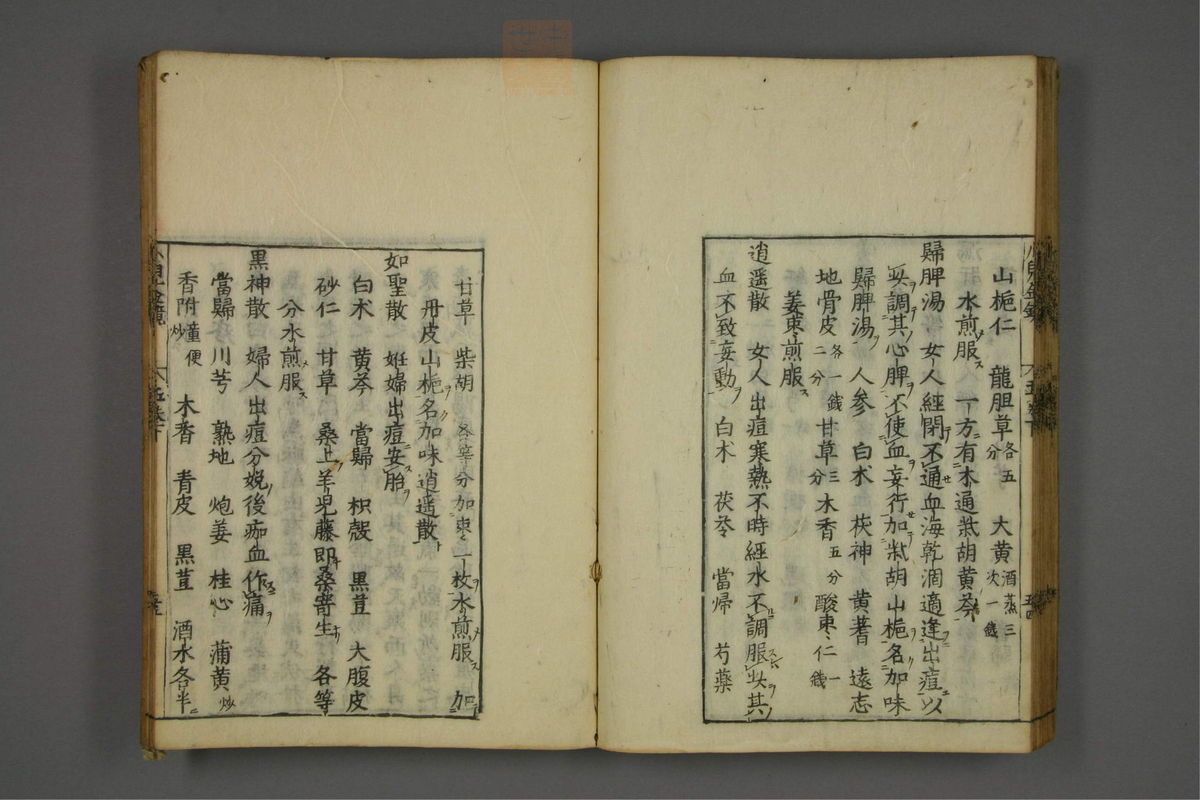 山梔仁　龍胆草各五分　大黄酒蒸三次一錢
水煎服ス　一方有木通柴胡黄芩
歸脾湯　女人經閉不通血海乾涸適逢出痘以
此調其心脾不使血妄行加柴胡山梔名加味
歸脾湯　人参　白朮　茯神　黄蓍　遠志
地骨皮各一錢二分　甘草三分　木香五分　酸棗仁一錢
姜棗煎服ス
逍遥散　女人出痘寒熱不時經水不調服此其
血不致妄動　白朮　茯苓　當帰　芍薬
甘草　柴胡各等分加棗一枚水煎服ス　加
丹皮山梔名加味逍遥散
如聖散　姙婦出痘安胎
白朮　黄芩　當歸　枳殻　黒荳　大腹皮
砂仁　甘草　桑上羊児藤即桑寄生　各等
分水煎服ス
黒神散　婦人出痘分娩後痂血作痛
當歸　川芎　熟地　炮姜　桂心　蒲黄炒
香附童便炒　木香　青皮　黒荳　酒水各半